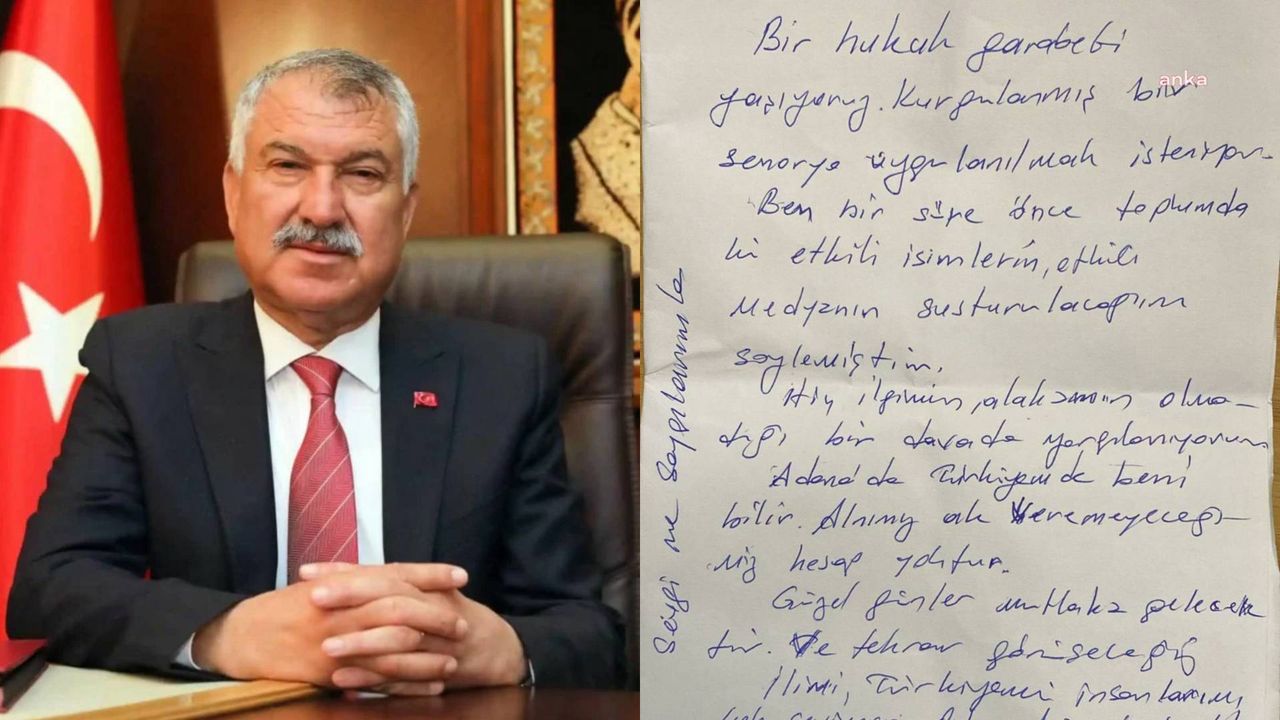 Bir hukuk garabeti
anka
yaşıyoruz. Kurgulanmış bir
senaryo uygulanılmak isteniyor.
Ben bir süre önce toplumda
ki etkili isimlerin, etkili
medyanın susturulacağını
söylemiştim.
Hiç ilgimin, alakamın olma-
dığı bir davada yargılanıyorum
Adana'da Türkiyem'de beni
bilir. Alnımız ak veremeyeceği-
miz hesap yoktur.
Güzel günler mutlaka gelecek
tir. Ve tekrar görüşeceğiz
İlimi, Türkiyemi insanlarını
Sevgi ve Saygılarımla